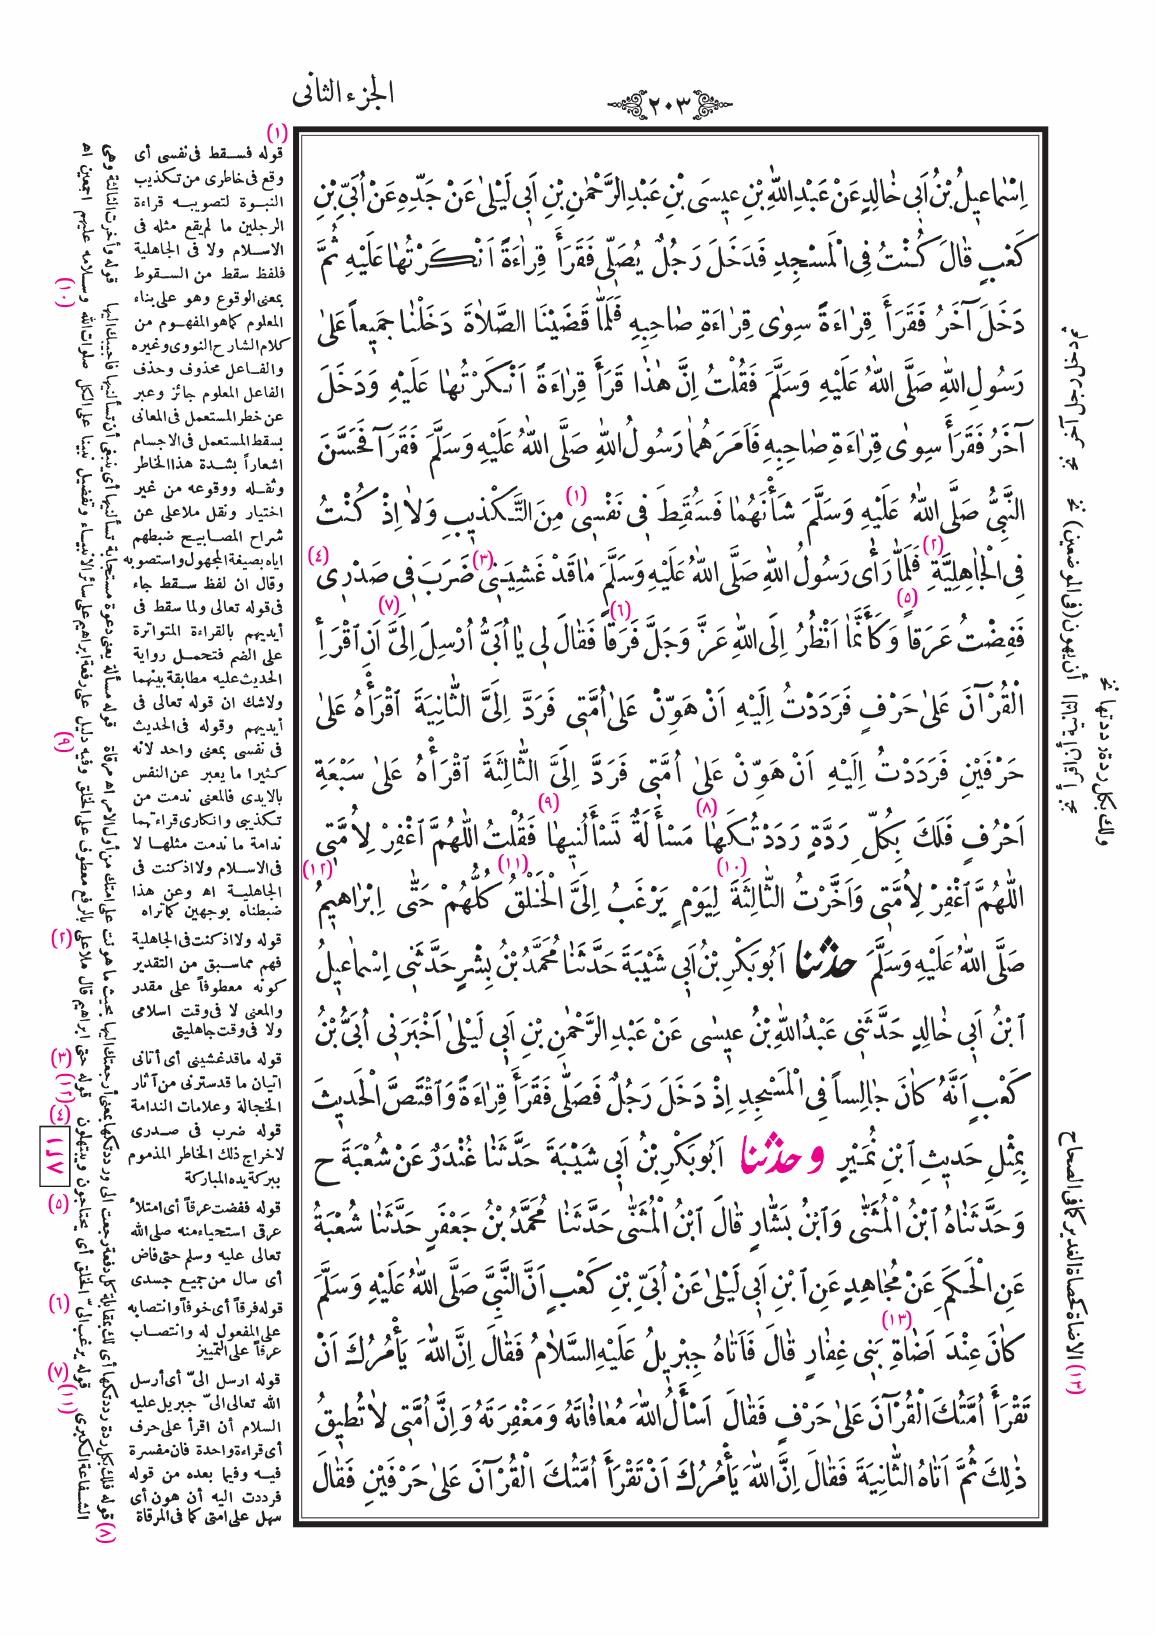 ٢٠٣
الجزء الثانى
اِسْمٰاعيلُ بْنُ اَبى خٰالِدٍ عَنْ عَبْدِ اللّٰهِ بْنِ عيسَى بْنِ عَبْدِ الرَّحْمٰنِ بْنِ اَبى لَيْلىٰ عَنْ جَدِّهِ عَنْ اُبَىِّ بْنِ
كَعْبٍ قٰالَ كُنْتُ فِى الْمَسْجِدِ فَدَخَلَ رَجُلٌ يُصَلّى فَقَرَأَ قِرٰاءَةً اَنْكَرْتُهٰا عَلَيْهِ ثُمَّ
دَخَلَ آخَرُ فَقَرَأَ قِرٰاءَةً سِوٰى قِرٰاءَةِ صٰاحِبِهِ فَلَمّٰا قَضَيْنَا الصَّلاٰةَ دَخَلْنٰا جَميعاً عَلىٰ
رَسُولِ اللّٰهِ صَلَّى اللّٰهُ عَلَيْهِ وَسَلَّمَ فَقُلْتُ اِنَّ هٰذٰا قَرَأَ قِرٰاءَةً اَنْكَرْتُهٰا عَلَيْهِ وَدَخَلَ
آخَرُ فَقَرَأَ سِوٰى قِرٰاءَةِ صٰاحِبِهِ فَاَمَرَهُمٰا رَسُولُ اللّٰهِ صَلَّى اللّٰهُ عَلَيْهِ وَسَلَّمَ فَقَرَآ فَحَسَّنَ
النَّبِىُّ صَلَّى اللّٰهُ عَلَيْهِ وَسَلَّمَ شَأْنَهُمٰا فَسُقِطَ فى نَفْسى (١) مِنَ التَّكْذيبِ وَلاٰ اِذْ كُنْتُ
فِى الْجٰاهِلِيَّةِ (٢) فَلَمّٰا رَأٰى رَسُولُ اللّٰهِ صَلَّى اللّٰهُ عَلَيْهِ وَسَلَّمَ مٰا قَدْ غَشِيَنى (٣) ضَرَبَ فى صَدْرى (٤)
فَفِضْتُ عَرَقاً (٥) وَكَأَنَّمٰا اَنْظُرُ اِلَى اللّٰهِ عَزَّ وَجَلَّ فَرَقاً (٦) فَقٰالَ لى يٰا اُبَىُّ اُرْسِلَ اِلَىَّ (٧) اَنِ اقْرَأِ
الْقُرْآنَ عَلىٰ حَرْفٍ فَرَدَدْتُ اِلَيْهِ اَنْ هَوِّنْ عَلىٰ اُمَّتى فَرَدَّ اِلَىَّ الثّٰانِيَةَ اقْرَأْهُ عَلىٰ
حَرْفَيْنِ فَرَدَدْتُ اِلَيْهِ اَنْ هَوِّنْ عَلىٰ اُمَّتى فَرَدَّ اِلَىَّ الثّٰالِثَةَ اقْرَأْهُ عَلىٰ سَبْعَةِ
اَحْرُفٍ فَلَكَ بِكُلِّ رَدَّةٍ رَدَدْتُكَهٰا (٨) مَسْأَلَةٌ تَسْأَلُنيهٰا (٩) فَقُلْتُ اللّٰهُمَّ اغْفِرْ لِاُمَّتى
اللّٰهُمَّ اغْفِرْ لِاُمَّتى وَاَخَّرْتُ الثّٰالِثَةَ (١٠) لِيَوْمٍ يَرْغَبُ اِلَىَّ الْخَلْقُ (١١) كُلُّهُمْ حَتّٰى اِبْرٰاهيمُ (١٢)
صَلَّى اللّٰهُ عَلَيْهِ وَسَلَّمَ حدّثنا اَبُو بَكْرِ بْنُ اَبى شَيْبَةَ حَدَّثَنٰا مُحَمَّدُ بْنُ بِشْرٍ حَدَّثَنى اِسْمٰاعيلُ
ابْنُ اَبى خٰالِدٍ حَدَّثَنى عَبْدُ اللّٰهِ بْنُ عيسٰى عَنْ عَبْدِ الرَّحْمٰنِ بْنِ اَبى لَيْلىٰ اَخْبَرَنى اُبَىُّ بْنُ
كَعْبٍ اَنَّهُ كٰانَ جٰالِساً فِى الْمَسْجِدِ اِذْ دَخَلَ رَجُلٌ فَصَلّٰى فَقَرَأَ قِرٰاءَةً وَاقْتَصَّ الْحَديثَ
بِمِثْلِ حَديثِ ابْنِ نُمَيْرٍ وحدّثنا اَبُو بَكْرِ بْنُ اَبى شَيْبَةَ حَدَّثَنٰا غُنْدَرٌ عَنْ شُعْبَةَ ح
وَحَدَّثَنٰاهُ ابْنُ الْمُثَنّٰى وَابْنُ بَشّٰارٍ قٰالَ ابْنُ الْمُثَنّٰى حَدَّثَنٰا مُحَمَّدُ بْنُ جَعْفَرٍ حَدَّثَنٰا شُعْبَةُ
عَنِ الْحَكَمِ عَنْ مُجٰاهِدٍ عَنِ ابْنِ اَبى لَيْلىٰ عَنْ اُبَىِّ بْنِ كَعْبٍ اَنَّ النَّبِىَّ صَلَّى اللّٰهُ عَلَيْهِ وَسَلَّمَ
كٰانَ عِنْدَ اَضٰاةِ (١٣) بَنى غِفٰارٍ قٰالَ فَاَتٰاهُ جِبْريلُ عَلَيْهِ السَّلاٰمُ فَقٰالَ اِنَّ اللّٰهَ يَأْمُرُكَ اَنْ
تَقْرَأَ اُمَّتُكَ الْقُرْآنَ عَلىٰ حَرْفٍ فَقٰالَ اَسْأَلُ اللّٰهَ مُعٰافٰاتَهُ وَمَغْفِرَتَهُ وَاِنَّ اُمَّتى لاٰ تُطيقُ
ذٰلِكَ ثُمَّ اَتٰاهُ الثّٰانِيَةَ فَقٰالَ اِنَّ اللّٰهَ يَأْمُرُكَ اَنْ تَقْرَأَ اُمَّتُكَ الْقُرْآنَ عَلىٰ حَرْفَيْنِ فَقٰالَ
(١)
قوله فسقط فى نفسى أى
وقع فى خاطرى من تكذيب
النبوة لتصويبه قراءة
الرجلين ما لم يقع مثله فى
الاسلام ولا فى الجاهلية
فلفظ سقط من السقوط
بمعنى الوقوع وهو على بناء
المعلوم كما هو المفهوم من
كلام الشارح النووى وغيره
والفاعل محذوف وحذف
الفاعل المعلوم جائز وعبر
عن خطر المستعمل فى المعانى
بسقط المستعمل فى الاجسام
اشعاراً بشدة هذا الخاطر
وثقله ووقوعه من غير
اختيار ونقل ملا على عن
شراح المصابيح ضبطهم
اياه بصيغة المجهول واستصوبه
وقال ان لفظ سقط جاء
فى قوله تعالى ولما سقط فى
أيديهم بالقراءة المتواترة
على الضم فتحمل رواية
الحديث عليه مطابقة بينهما
ولاشك ان قوله تعالى فى
أيديهم وقوله فى الحديث
فى نفسى بمعنى واحد لانه
كثيرا ما يعبر عن النفس
بالايدى فالمعنى ندمت من
تكذيبى وانكارى قراءتهما
ندامة ما ندمت مثلها لا
فى الاسلام ولا اذ كنت فى
الجاهلية اھ وعن هذا
ضبطناه بوجهين كما تراه
(٢) قوله ولا اذ كنت فى الجاهلية
فهم مما سبق من التقدير
كونه معطوفاً على مقدر
والمعنى لا فى وقت اسلامى
ولا فى وقت جاهليتى
(٣) قوله ما قد غشينى أى أتانى
اتيان ما قد سترنى من آثار
الخجالة وعلامات الندامة
(٤) قوله ضرب فى صدرى
لاخراج ذلك الخاطر المذموم
ببركة يده المباركة
(٥) قوله ففضت عرقاً أى امتلأ
عرقى استحياء منه صلى الله
تعالى عليه وسلم حتى فاض
أى سال من جميع جسدى
(٦) قوله فرقاً أى خوفاً وانتصابه
على المفعول له وانتصاب
عرقاً على التمييز
(٧) قوله ارسل الىّ أى أرسل
الله تعالى الىّ جبريل عليه
السلام أن اقرأ على حرف
أى قراءة واحدة فان مفسرة
فيه وفيما بعده من قوله
فرددت اليه أن هون أى
سهل على امتى كما فى المرقاة
(٨) قوله فلك بكل ردة رددتكها أى لك بمقابلة كل دفعة رجعت الى ورددتكها بمعنى أرجعتك اليها بحيث ما هونت على امتك من أول الامر اھ مرقاة (٩) قوله مسألة يعنى دعوة مستجابة تسألنيها أى ينبغى أن تسألنيها فأجيبك اليها (١٠) قوله وأخرت الثالثة وهى
الشفاعة الكبرى (١١) قوله يرغب الىّ الخلق أى يحتاجون ويبتهلون (١٢) قوله حتى ابراهيم قال ملا على بالرفع معطوف على الخلق وفيه دليل على رفعة ابراهيم على سائر الانبياء وتفضيل نبينا على الكل صلوات الله وسلامه عليهم أجمعين اھ
أن يهون (فى الموضعين) نخ
ولك بكل ردة رددتها نخ
(١٣) الاضاة الغدير كما فى الصحاح